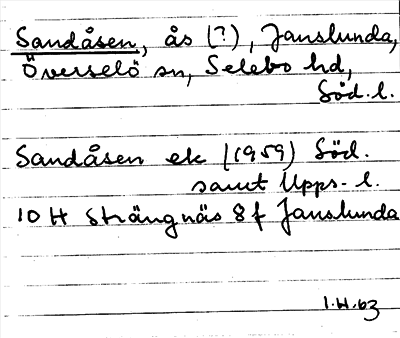 Sandåsen, ås (?), Janslunda,
Överselö sn, Selebo hd,
Söd. l.
Sandåsen ek (1959) Söd.
samt Upps. l.
10 H Strängnäs 8f Janslunda
1.H.63